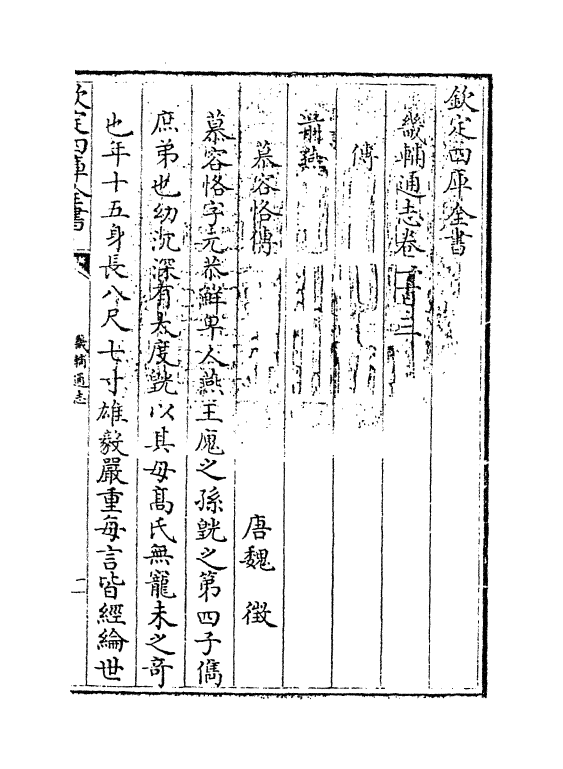 欽定四庫全書
畿輔通志卷一百三
傳
前燕
慕容恪傳
唐魏 徵
慕容恪字元恭鮮卑人燕王廆之孫皝之第四子儁
庶弟也幼沉深有大度皝以其母髙氏無寵未之竒
也年十五身長八尺七寸雄毅嚴重每言皆經綸世
欽定四庫全書
畿輔通志